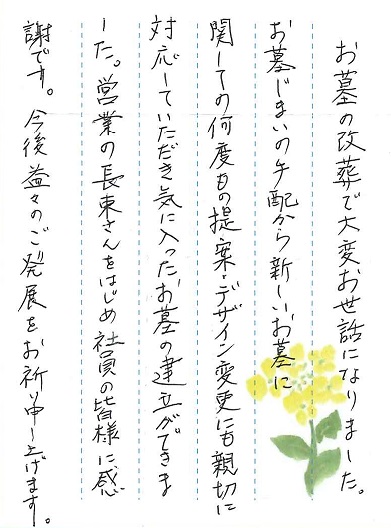 お墓の改葬で大変お世話になりました。
お墓じまいの手配から新しいお墓に
関しての何度もの提案・デザイン変更にも親切に
対応していただき気に入ったお墓の建立ができま
した。営業の長東さんをはじめ社員の皆様に感
謝です。今後益々のご発展をお祈り申し上げます。